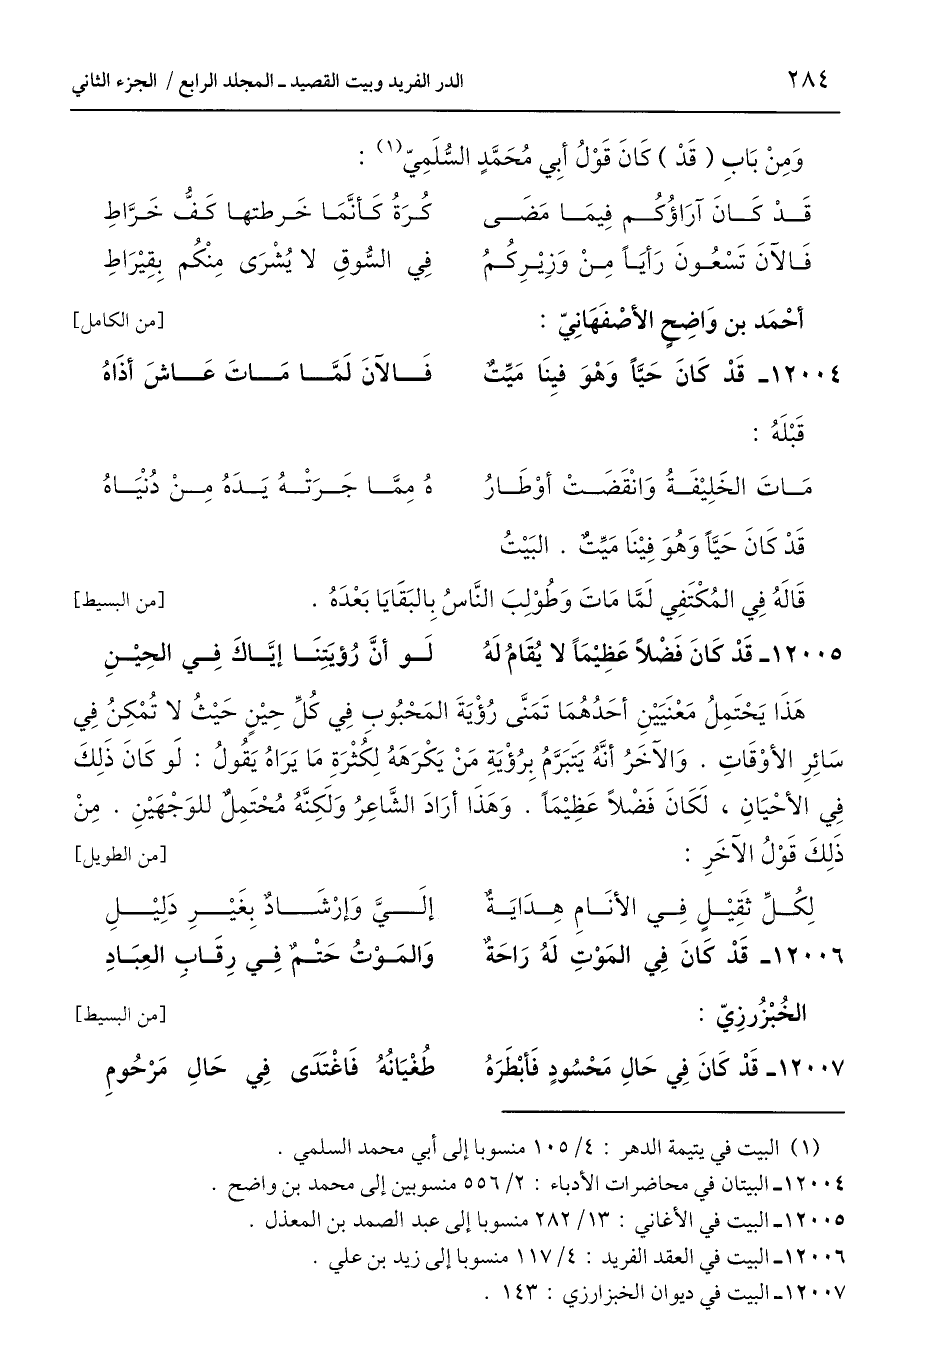 ٢٨٤ الدر الفريد وبيت القصيد ـ المجلد الرابع / الجزء الثاني
وَمِنْ بَابِ ( قَدْ ) كَانَ قَوْلُ أبِي مُحَمَّدٍ السُّلَمِيّ(١) :
قَـدْ كَـانَ آرَاؤُكُـم فِيمَـا مَضَـى كُـرَةُ كَـأنَّمَـا خَـرطتهـا كَـفُّ خَـرَّاطِ
فَـالآنَ تَسْعُـونَ رَأيَـاً مِـنْ وَزِيْـرِكُـمُ فِي السُّوقِ لا يُشْرَى مِنْكُم بِقِيْرَاطِ
أحْمَد بن وَاضِحٍ الأصْفَهَانِيّ : [من الكامل]
١٢٠٠٤ـ قَدْ كَانَ حَيَّاً وَهْوَ فِينَا مَيِّتٌ فَـالآنَ لَمَّـا مَـاتَ عَـاشَ أذَاهُ
قَبْلَهُ :
مَـاتَ الخَلِيْفَـةُ وَانْقَضَـتْ أوْطَـارُ هُ مِمَّـا جَـرَتْـهُ يَـدَهُ مِـنْ دُنْيَـاهُ
قَدْ كَانَ حَيَّاً وَهُوَ فِيْنَا مَيِّتٌ . البَيْتُ
قَالَهُ فِي المُكْتَفِي لَمَّا مَاتَ وَطُوْلِبَ النَّاسُ بِالبَقَايَا بَعْدَهُ . [من البسيط]
١٢٠٠٥ـ قَدْ كَانَ فَضْلاً عَظِيْمَاً لا يُقَامُ لَهُ لَـو أنَّ رُؤيَتِنَـا إيَّـاكَ فِـي الحِيْـنِ
هَذَا يَحْتَمِلُ مَعْنَيَيْنِ أحَدُهُمَا تَمَنَّى رُؤْيَةَ المَحْبُوبِ فِي كُلِّ حِيْنٍ حَيْثُ لا تُمْكِنُ فِي
سَائِرِ الأوْقَاتِ . وَالآخَرُ أنَّهُ يَتَبَرَّمُ بِرُؤْيَةِ مَنْ يَكْرَهَهُ لِكُثْرَةِ مَا يَرَاهُ يَقُولُ : لَو كَانَ ذَلِكَ
فِي الأحْيَانِ ، لَكَانَ فَضْلاً عَظِيْمَاً . وَهَذَا أرَادَ الشَّاعِرُ وَلَكِنَّهُ مُحْتَمِلٌ للوَجْهَيْنِ . مِنْ
ذَلِكَ قَوْلُ الآخَرِ : [من الطويل]
لِكُـلِّ ثَقِيْـلٍ فِـي الأنَـامِ هِـدَايَـةٌ إلَـيَّ وَإرْشَـادٌ بِغَيْـرِ دَلِيْـلِ
١٢٠٠٦ـ قَدْ كَانَ فِي المَوْتِ لَهُ رَاحَةٌ وَالمَـوْتُ حَتْـمٌ فِـي رِقَـابِ العِبَـادِ
الخُبْزُرزِيّ : [من البسيط]
١٢٠٠٧ـ قَدْ كَانَ فِي حَالِ مَحْسُودٍ فَأبْطَرَهُ طُغْيَانُهُ فَاغْتَدَى فِي حَالِ مَرْحُومِ
(١) البيت في يتيمة الدهر : ٤/ ١٠٥ منسوبا إلى أبي محمد السلمي .
١٢٠٠٤ـ البيتان في محاضرات الأدباء : ٢/ ٥٥٦ منسوبين إلى محمد بن واضح .
١٢٠٠٥ـ البيت في الأغاني : ١٣/ ٢٨٢ منسوبا إلى عبد الصمد بن المعذل .
١٢٠٠٦ـ البيت في العقد الفريد : ٤/ ١١٧ منسوبا إلى زيد بن علي .
١٢٠٠٧ـ البيت في ديوان الخبزارزي : ١٤٣ .